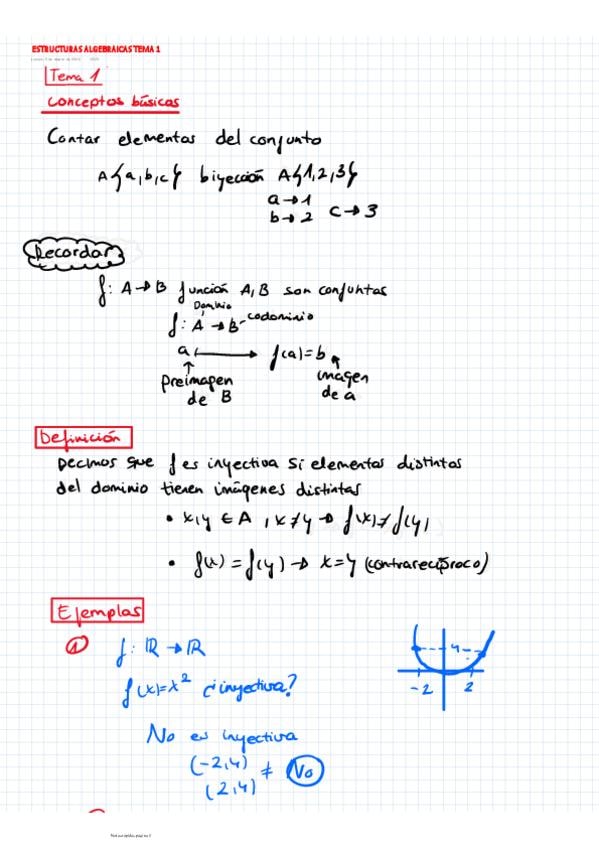 ESTRUCTURAS ALGEBRAICAS TEMA 1
Tema 1
Conceptos básicos
Contar elementos del conjunto
A{a,b,c} biyección A{1,2,3}
a→1
b→2 c→3
Recordar
f: A→B función A,B son conjuntos
Dominio
f: A→B codominio
a ⟼ f(a)=b
↑ ↑
preimagen imagen
de B de a
Definición
Decimos que f es inyectiva si elementos distintos
del dominio tienen imágenes distintas
• x,y ∈ A, x≠y → f(x)≠f(y)
• f(x)=f(y)→ x=y (contrarecíproco)
Ejemplos
① f: ℝ→ℝ
f(x)=x² ¿inyectiva?
4
-2 2
No es inyectiva
(-2,4) ≠ No
(2,4)